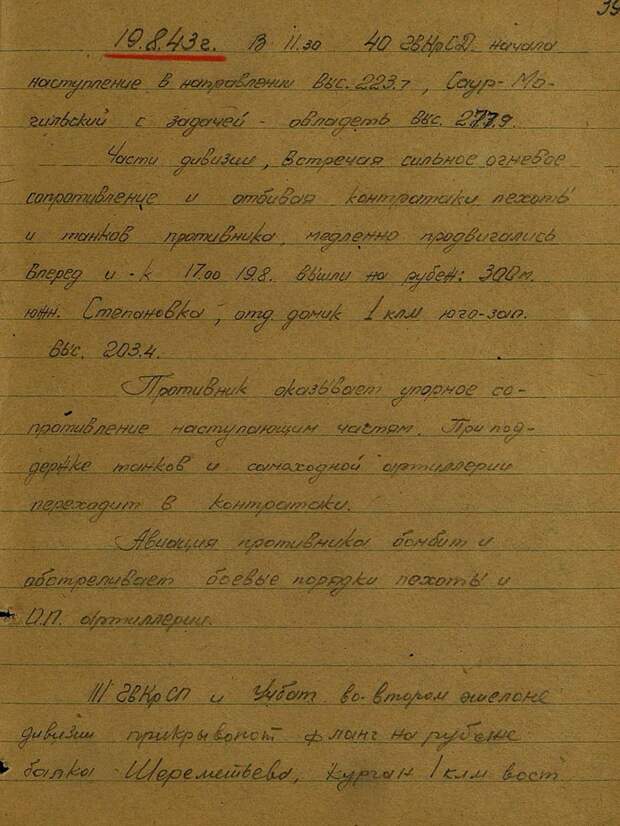 39
19.8.43г. В 11.30 40 ГвКрСД начала
наступление в направлении выс. 223.7, Саур-Мо-
гильский с задачей - овладеть выс. 277.9.
Части дивизии, встречая сильное огневое
сопротивление и отбивая контратаки пехоты
и танков противника, медленно продвигались
вперед и - к 17.00 19.8. вышли на рубеж: 300м.
южн. Степановка, отд. домик 1 клм юго-зап.
выс. 203.4.
Противник оказывает упорное со-
противление наступающим частям. При под-
держке танков и самоходной артиллерии
переходит в контратаки.
Авиация противника бомбит и
обстреливает боевые порядки пехоты и
О.П. артиллерии.
111 ГвКрСП и Учбат во втором эшелоне
дивизии прикрывают фланг на рубеже
балка Шереметьева, курган 1 клм вост